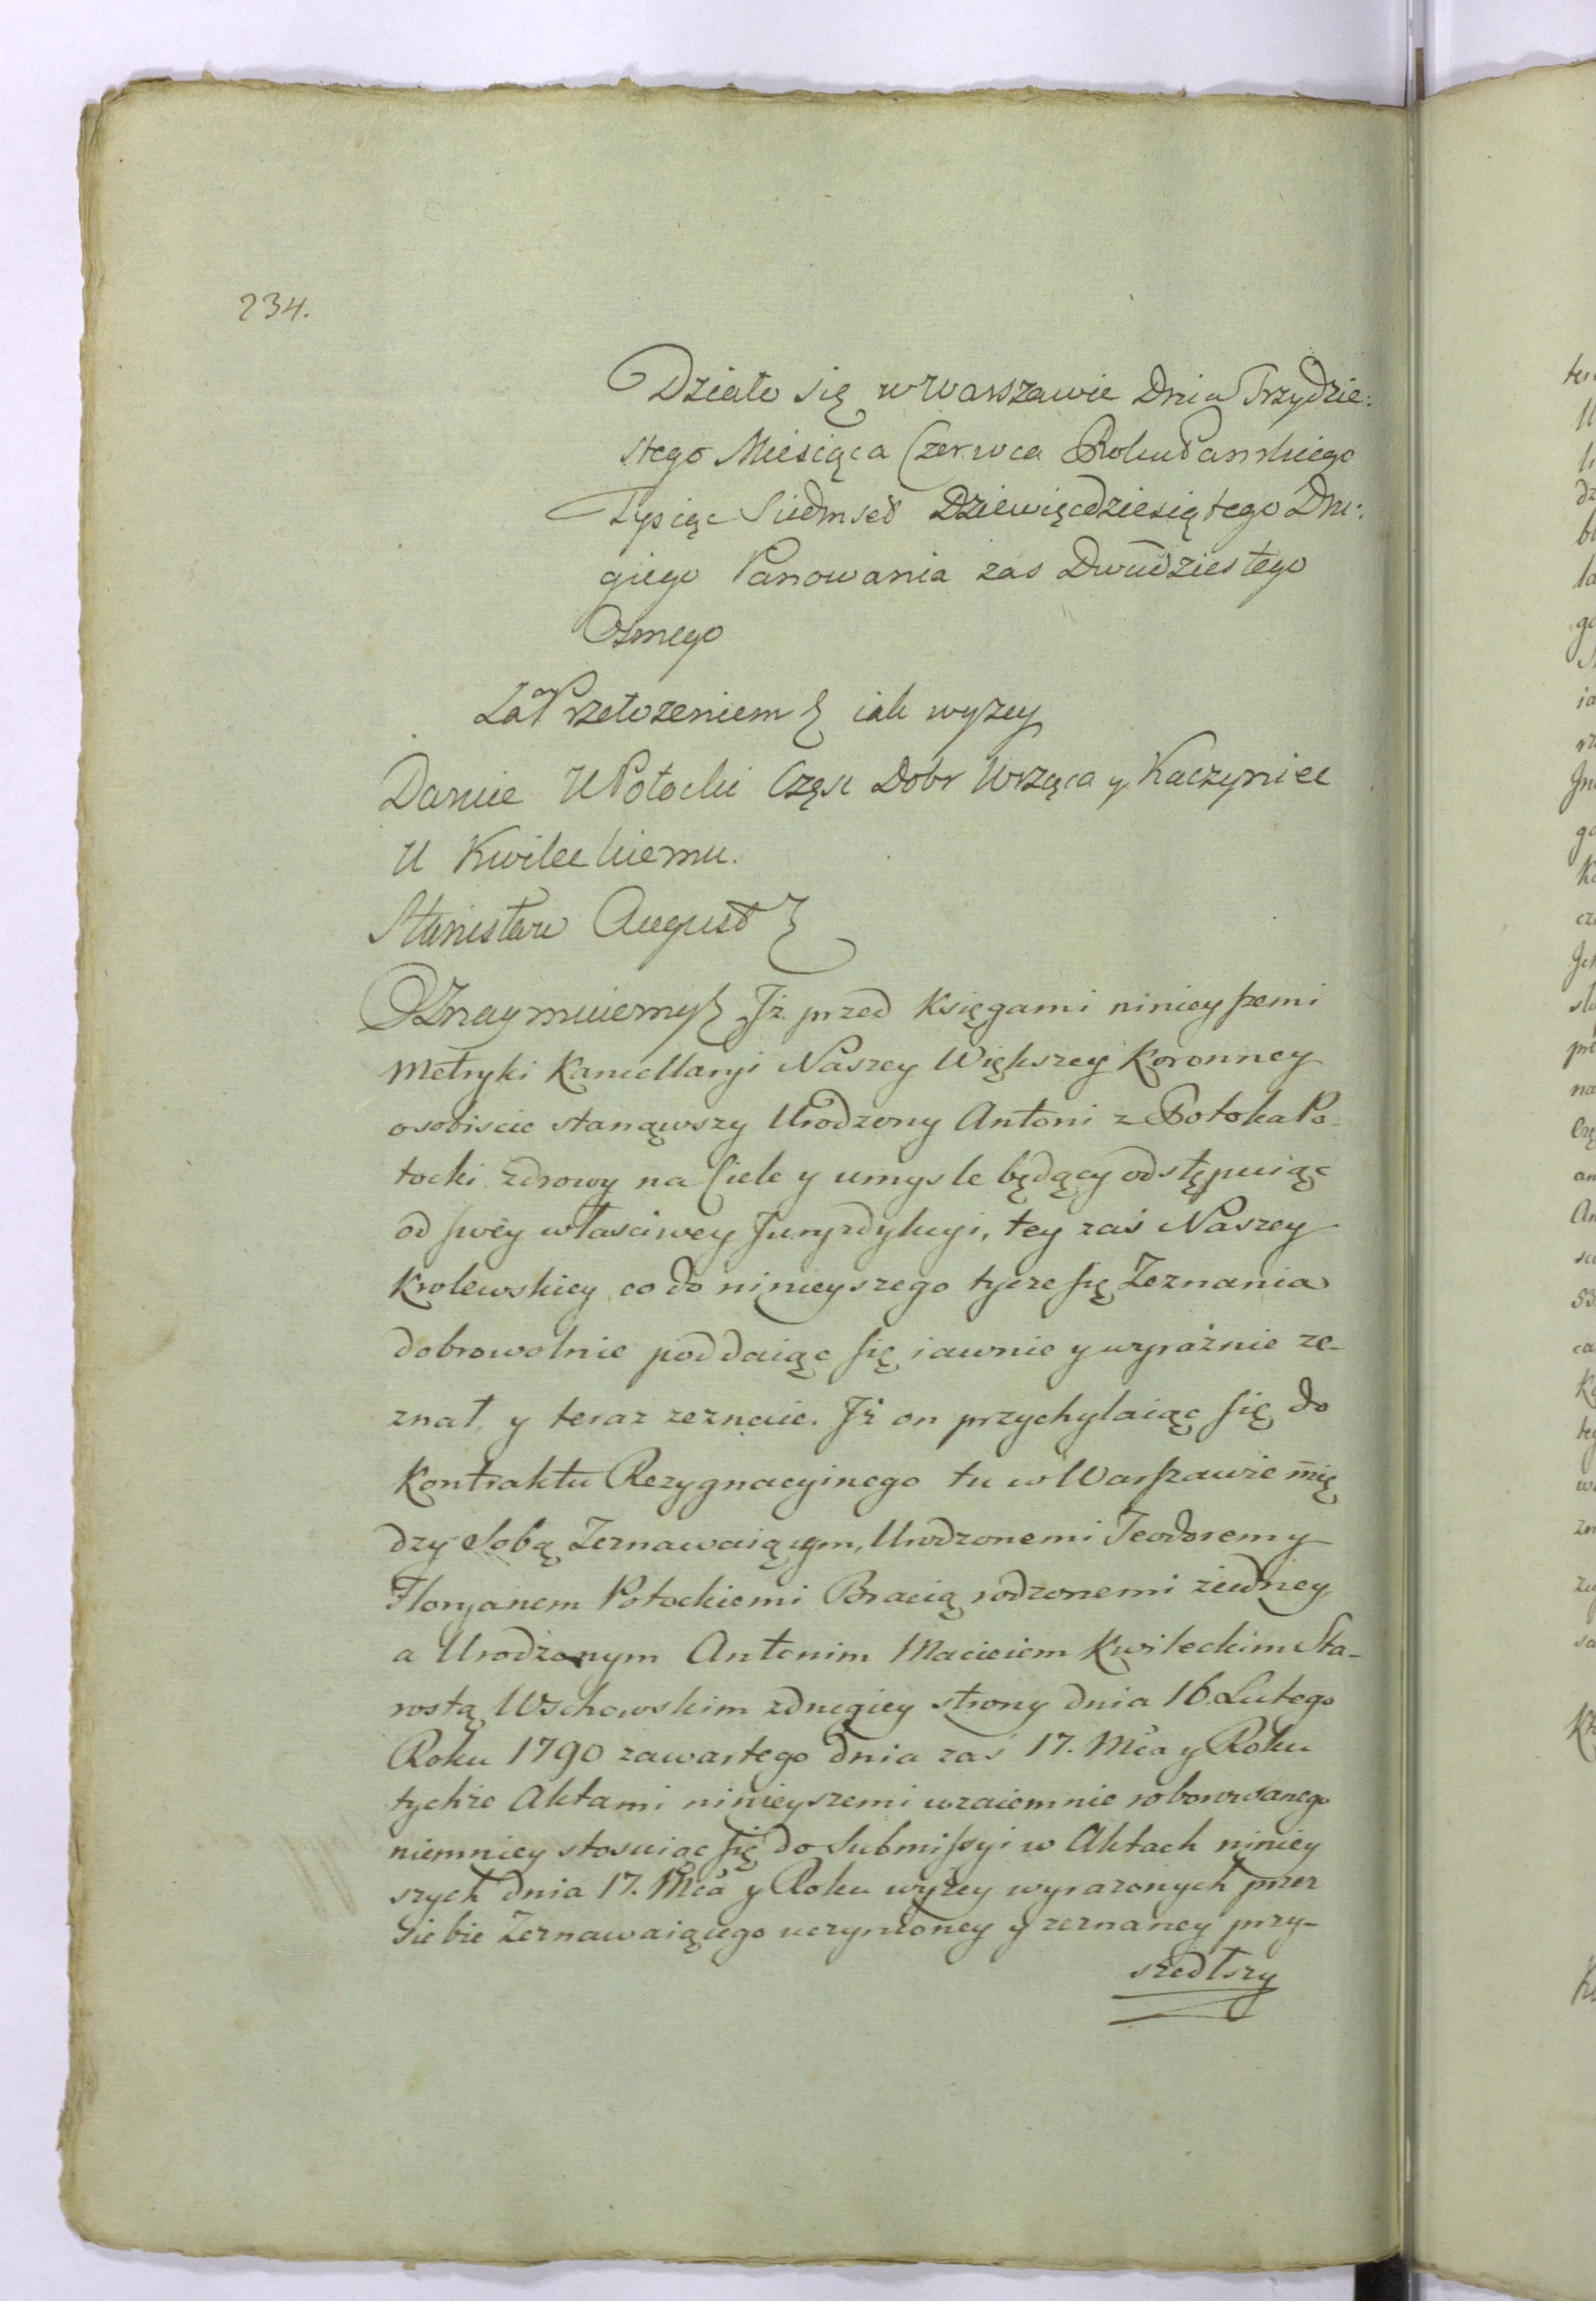 234.
Działo się w Warszawie Dnia Trzydzie:
stego Miesiąca Czerwca Roku Panskiego
Tysiąc Siedmset Dziewięcdziesiątego Dru:
giego Panowania zas Dwudziestego
Osmego
Za Przełozeniem iak wyzey
Daruie U Potocki Częsc Dobr Wrząca y Kaczyniec
U Kwileckiemu.
Stanisław August
Oznaymuiemy Iż przed Księgami ninieyszemi
Metryki Kancellaryi Naszey Większey Koronney
osobiscie stanąwszy Urodzony Antoni z Potoka Po-
tocki zdrowy na Ciele y umysle będący odstępuiąc
od swey własciwey Juryzdykcyi, tey zaś Naszey
Krolewskiey co do ninieyszego tycze się Zeznania
dobrowolnie poddaiąc się iawnie y wyrażnie ze-
znał, y teraz zeznaie. Iż on przychylaiąc się do
Kontraktu Rezygnacyinego tu w Warszawie mię
dzy Sobą Zeznawaiącym, Urodzonemi Teodorem y
Floryanem Potockiemi Bracią rodzonemi ziedney,
a Urodzonym Antonim Macieiem Kwileckim Sta-
rostą Wschowskim zdrugiey strony dnia 16. Lutego
Roku 1790 zawartego dnia zaś 17. Mca y Roku
tychże Aktami ninieyszemi wzaiemnie roborowanego
niemniey stosuiąc się do Submissyi w Aktach niniey
szych dnia 17. Mca y Roku wyżey wyrazonych przez
Siebie Zeznawaiącego uczynioney y zeznaney przy-
szedłszy